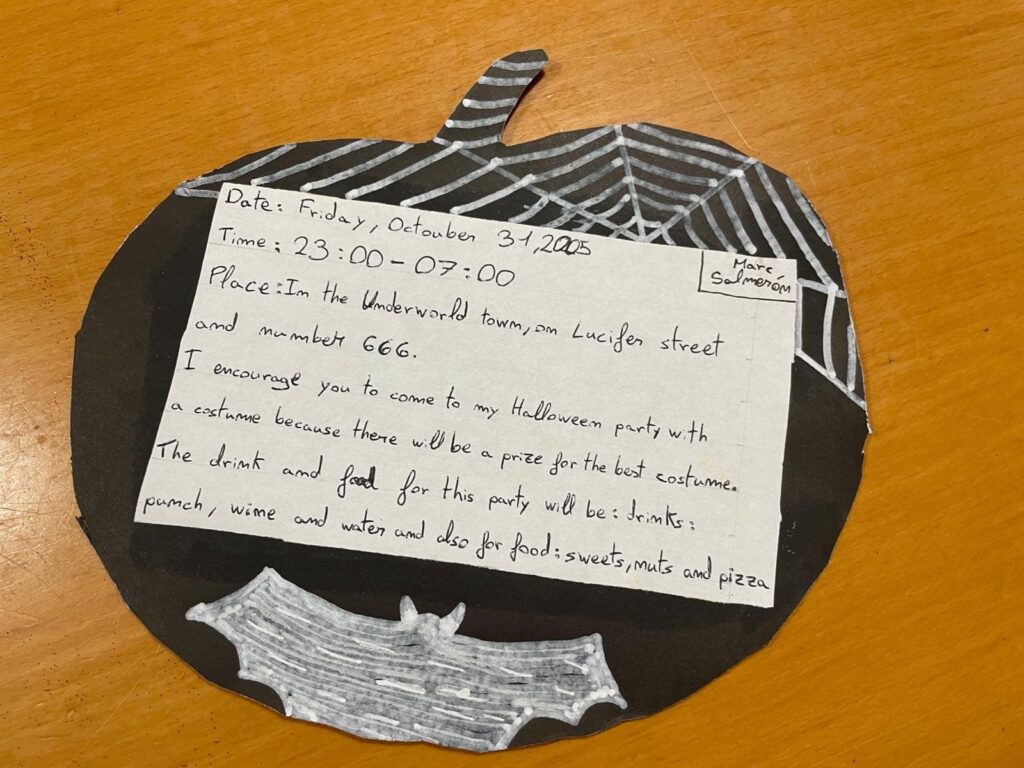 Date: Friday, Octouber 31, 2005
Time: 23:00 - 07:00
Marc
Salmerón
Place: In the Underworld town, on Lucifer street
and number 666.
I encourage you to come to my Halloween party with
a costume because there will be a prize for the best costume.
The drink and food for this party will be: drinks:
punch, wine and water and also for food: sweets, nuts and pizza